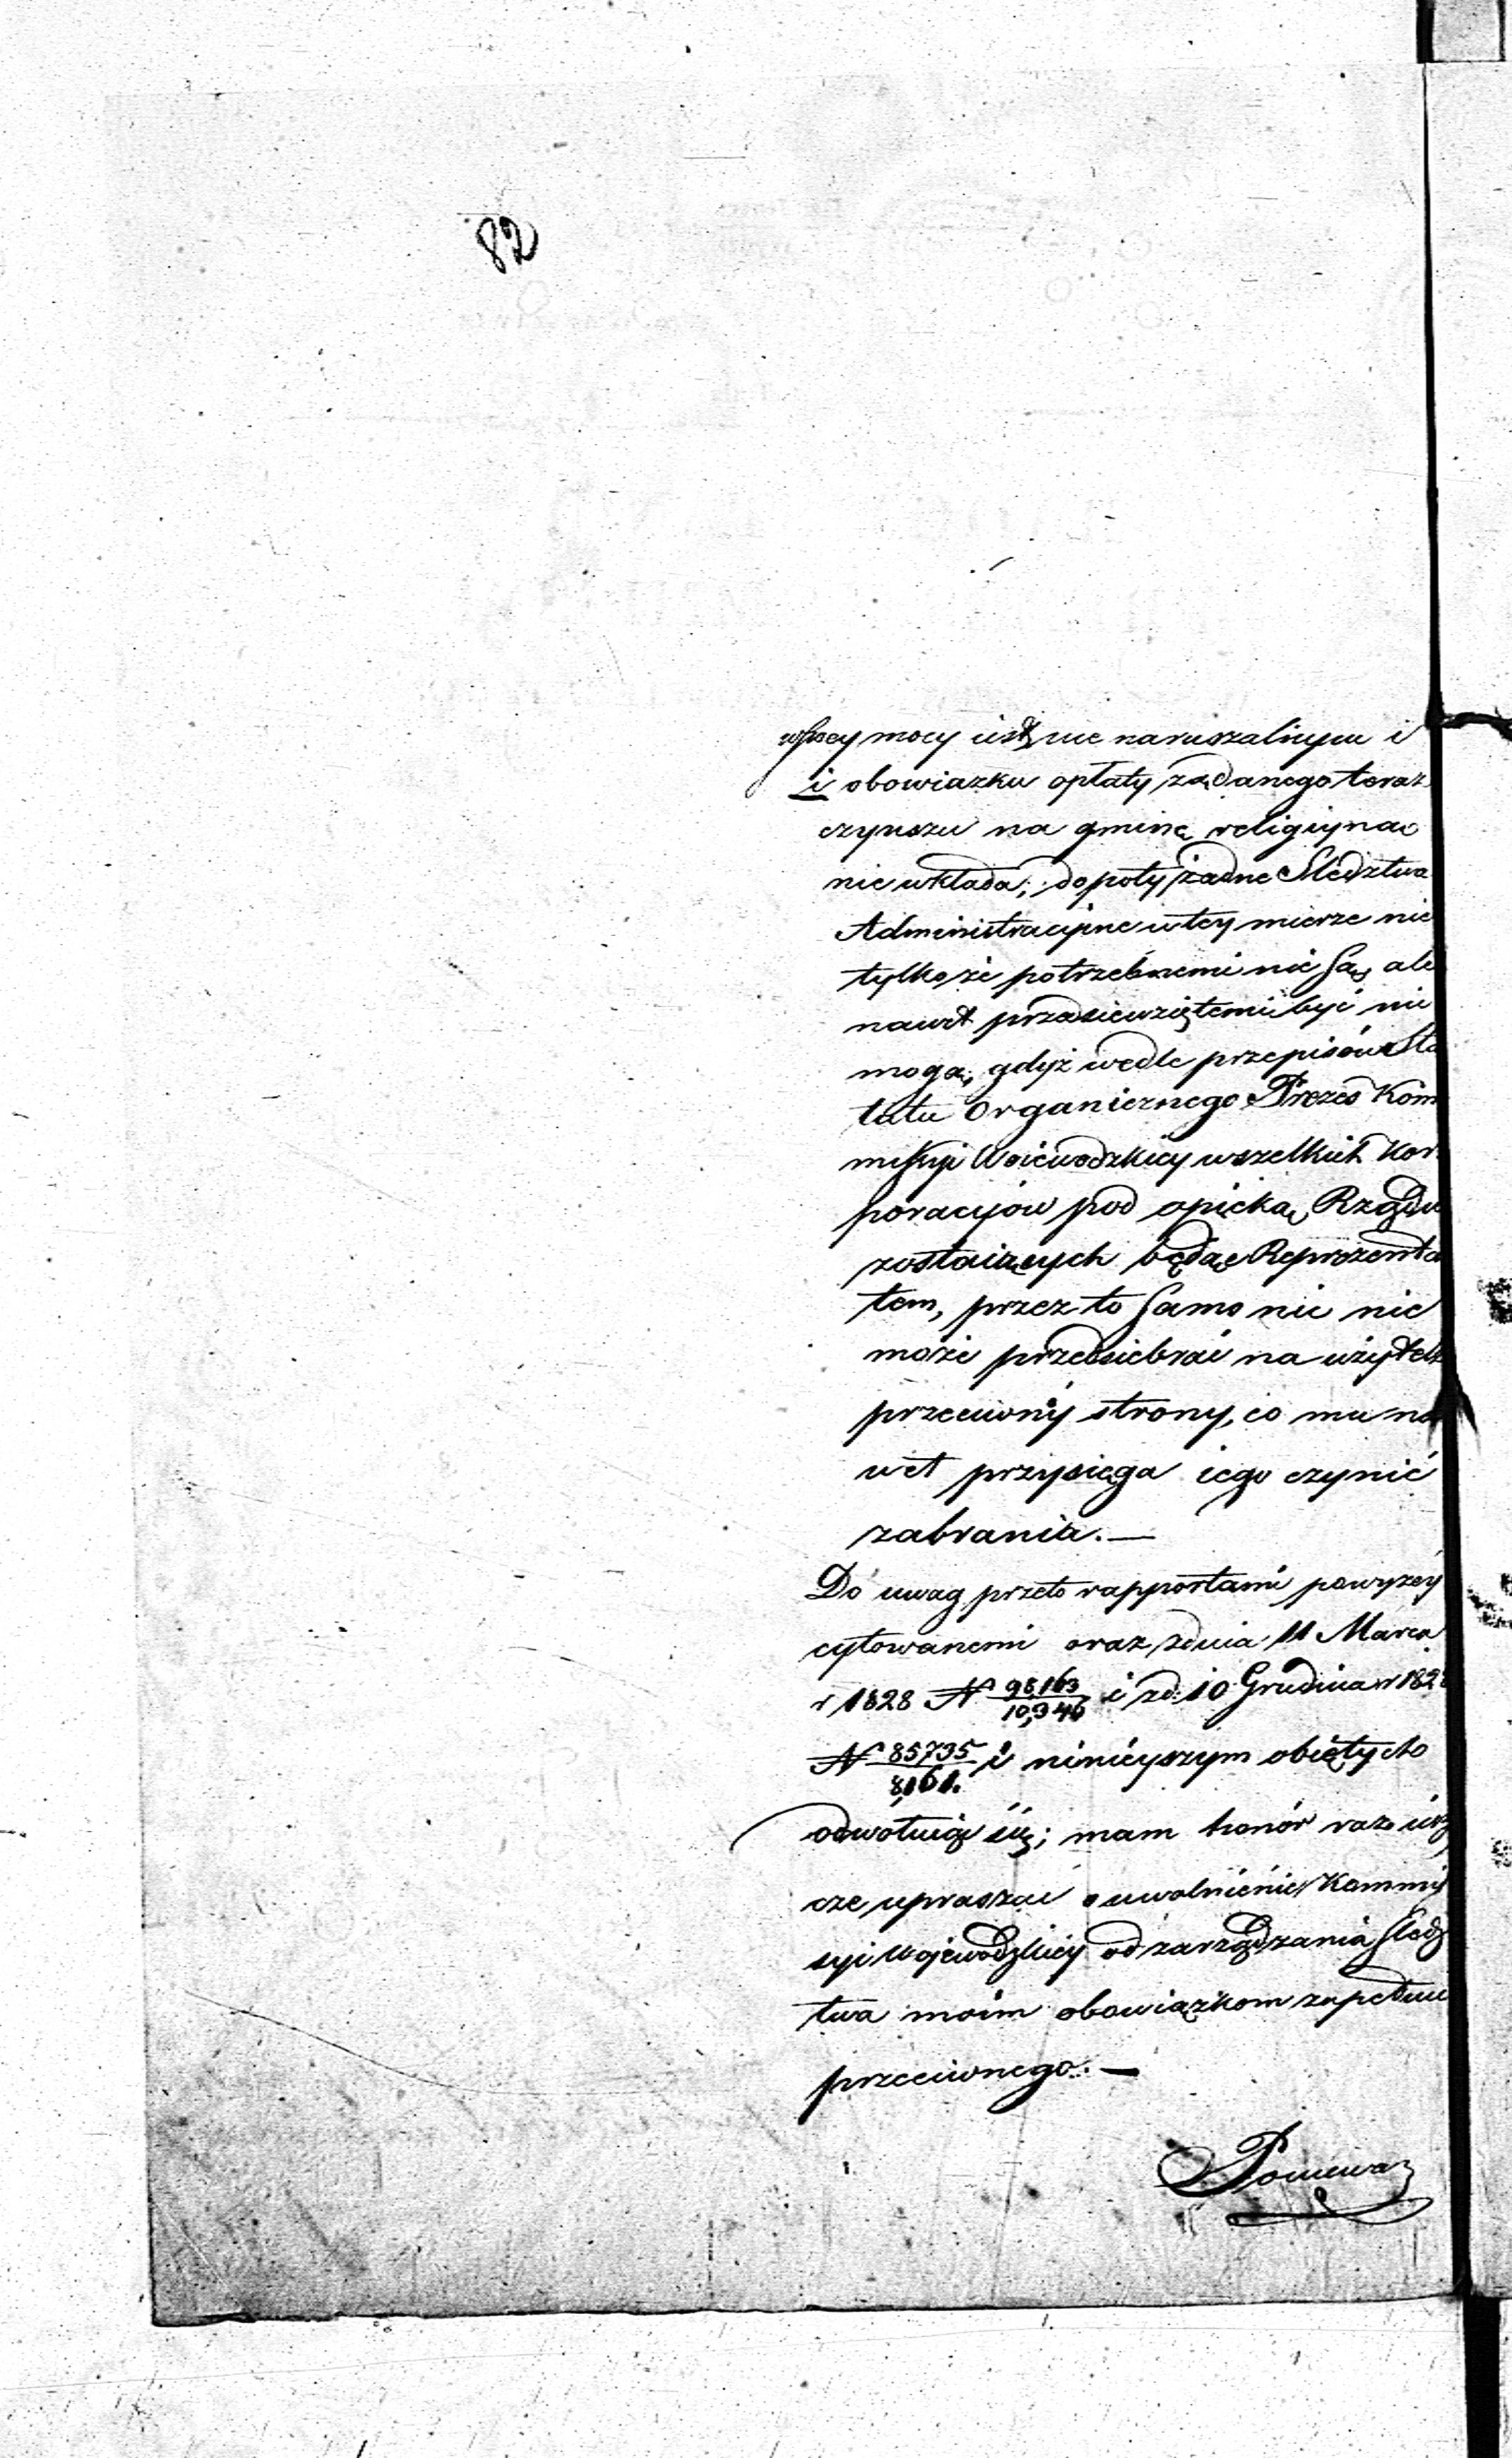 82
wszey mocy iest nie naruszalnym i
i obowiazku opłaty żądanego teraz
czynszu na gminę religiyną
nie wkłada; dopoty żadne Sledztwa
Administracyine w tey mierze nie
tylko że potrzebnemi nie są, ale
nawet przedsiewziętemi być nie
mogą; gdyż wedle przepisów Sta
tutu Organicznego Prezes Kom
missyi Woiewodzkiey wszelkich Kor
poracyiów pod opieką Rządu
zostaiących będąc Reprezenta
tem, przez to samo nic nie
może przedsiebrać na użytek
przeciwnéy strony, co mu na
wet przysięga iego czynić
zabrania. —
Do uwag przeto rapportami powyżey
cytowanemi oraz z dnia 11 Marca
r 1828 N 98,163/10,346 i z d: 10 Grudnia r 182
N 85735/8,161. i ninieyszym obiętych
odwołuiąc się; mam honór raz iesz
cze upraszać o uwolnienie Kommis
syi Wojewodzkiey od zarządzania Sledz
twa moim obowiązkom zupełnie
przeciwnego. —